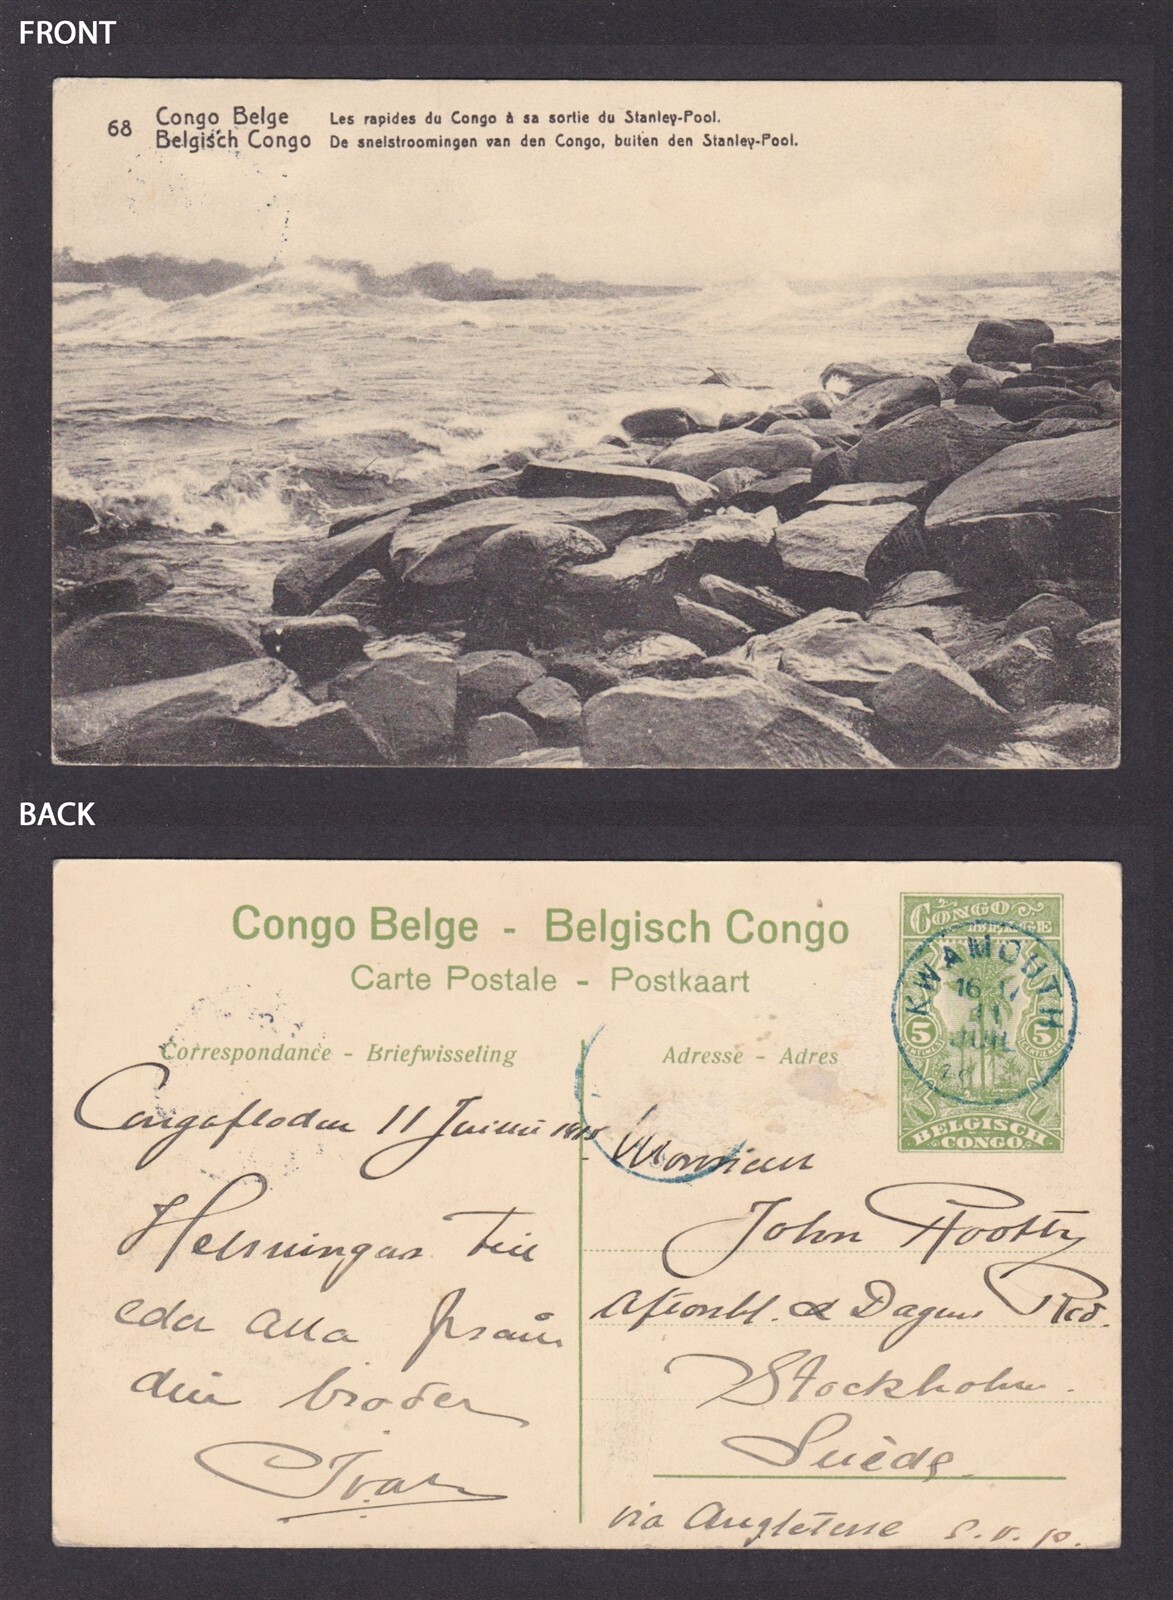 FRONT
68 Congo Belge Les rapides du Congo à sa sortie du Stanley-Pool.
Belgisch Congo De snelstroomingen van den Congo, buiten den Stanley-Pool.
BACK
Congo Belge - Belgisch Congo
Carte Postale - Postkaart
CONGO BELGE
KWAMOUTH
11
JUIL
5 5
CENTIMES CENTIEMEN
BELGISCH
CONGO
Correspondance - Briefwisseling
Adresse - Adres
Congofloden 11 Juni
Helsningar till
eder alla från
din broder
Ivar
Monsieur
John
Aftonbl. & Dagens Red.
Stockholm.
Suède.
via Angleterre s. v. p.